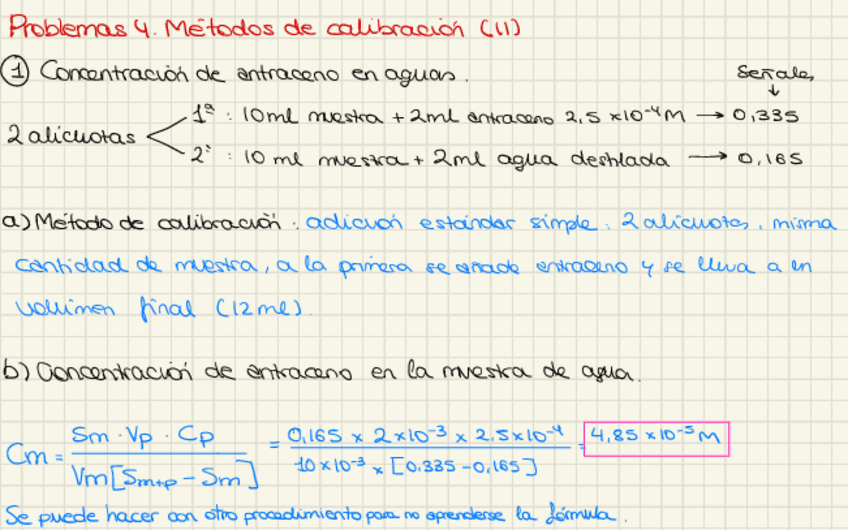 Problemas 4. Métodos de calibración (II)
① Concentración de antraceno en aguas.
Señales
↓
1ª : 10ml muestra + 2ml antraceno 2,5 x10⁻⁴M → 0,335
2 alicuotas
2ª : 10 ml muestra + 2ml agua destilada → 0,165
a) Método de calibración : adición estándar simple : 2 alicuotas, misma
cantidad de muestra, a la primera se añade antraceno y se lleva a un
volumen final (12ml).
b) Concentración de antraceno en la muestra de agua.
Cm = Sm · Vp · Cp / Vm [Sm+p - Sm] = 0,165 x 2x10⁻³ x 2,5x10⁻⁴ / 10x10⁻³ x [0,335 - 0,165] = 4,85 x10⁻⁵ M
Se puede hacer con otro procedimiento para no aprenderse la fórmula.